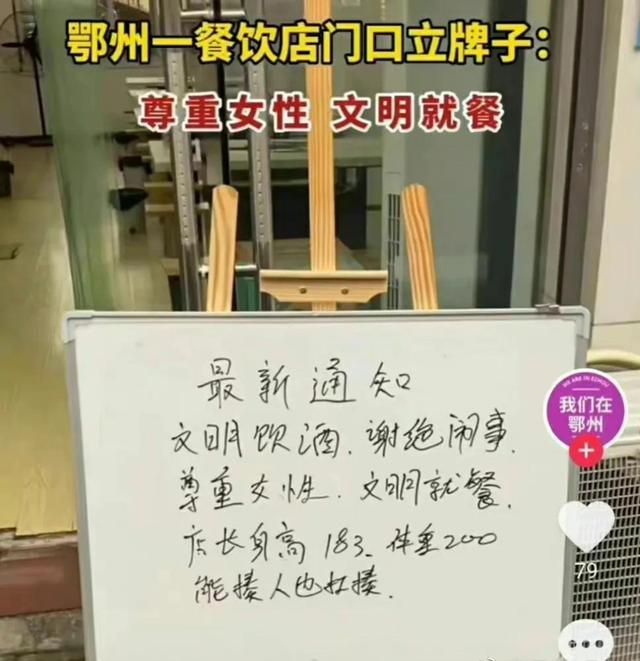 鄂州一餐饮店门口立牌子：
尊重女性 文明就餐
最新通知
文明饮酒、谢绝闹事、
尊重女性、文明就餐、
店长身高 183、体重200
能揍人也扛揍、
WE ARE IN EZHOU
我们在
鄂州
79